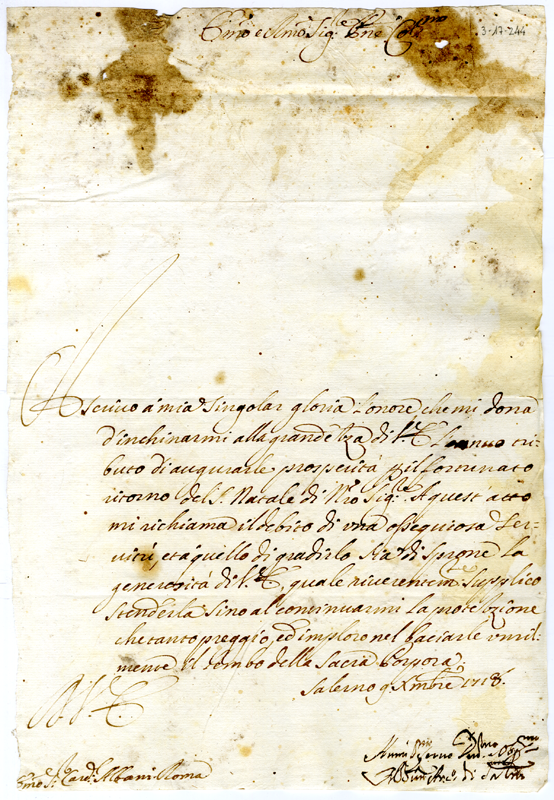 3-17-244
Em̃o e Rmõ Sig.re Pne Col.mo
Ascrivo à mia singolar gloria l'onore, che mi dona
d'inchinarmi alla grandezza di V. E. l'annuo tri-
buto di augurarle prosperità p il fortunato
ritorno del S. Natale di Nr̃o Sig.re A quest'atto
mi richiama il debito di una ossequiosa Ser-
vitù, et à quello di gradirlo Sta di sprone la
generosità di V. E., quale riverentem.te supplico
stenderla sino al continuarmi la protezzione
che tanto preggio, ed imploro nel baciarle umil-
mente il lembo della Sacra Porpora
Salerno 9 Xmbre 1718.
D. V. E.
Sr Card. Albani Roma
Servo